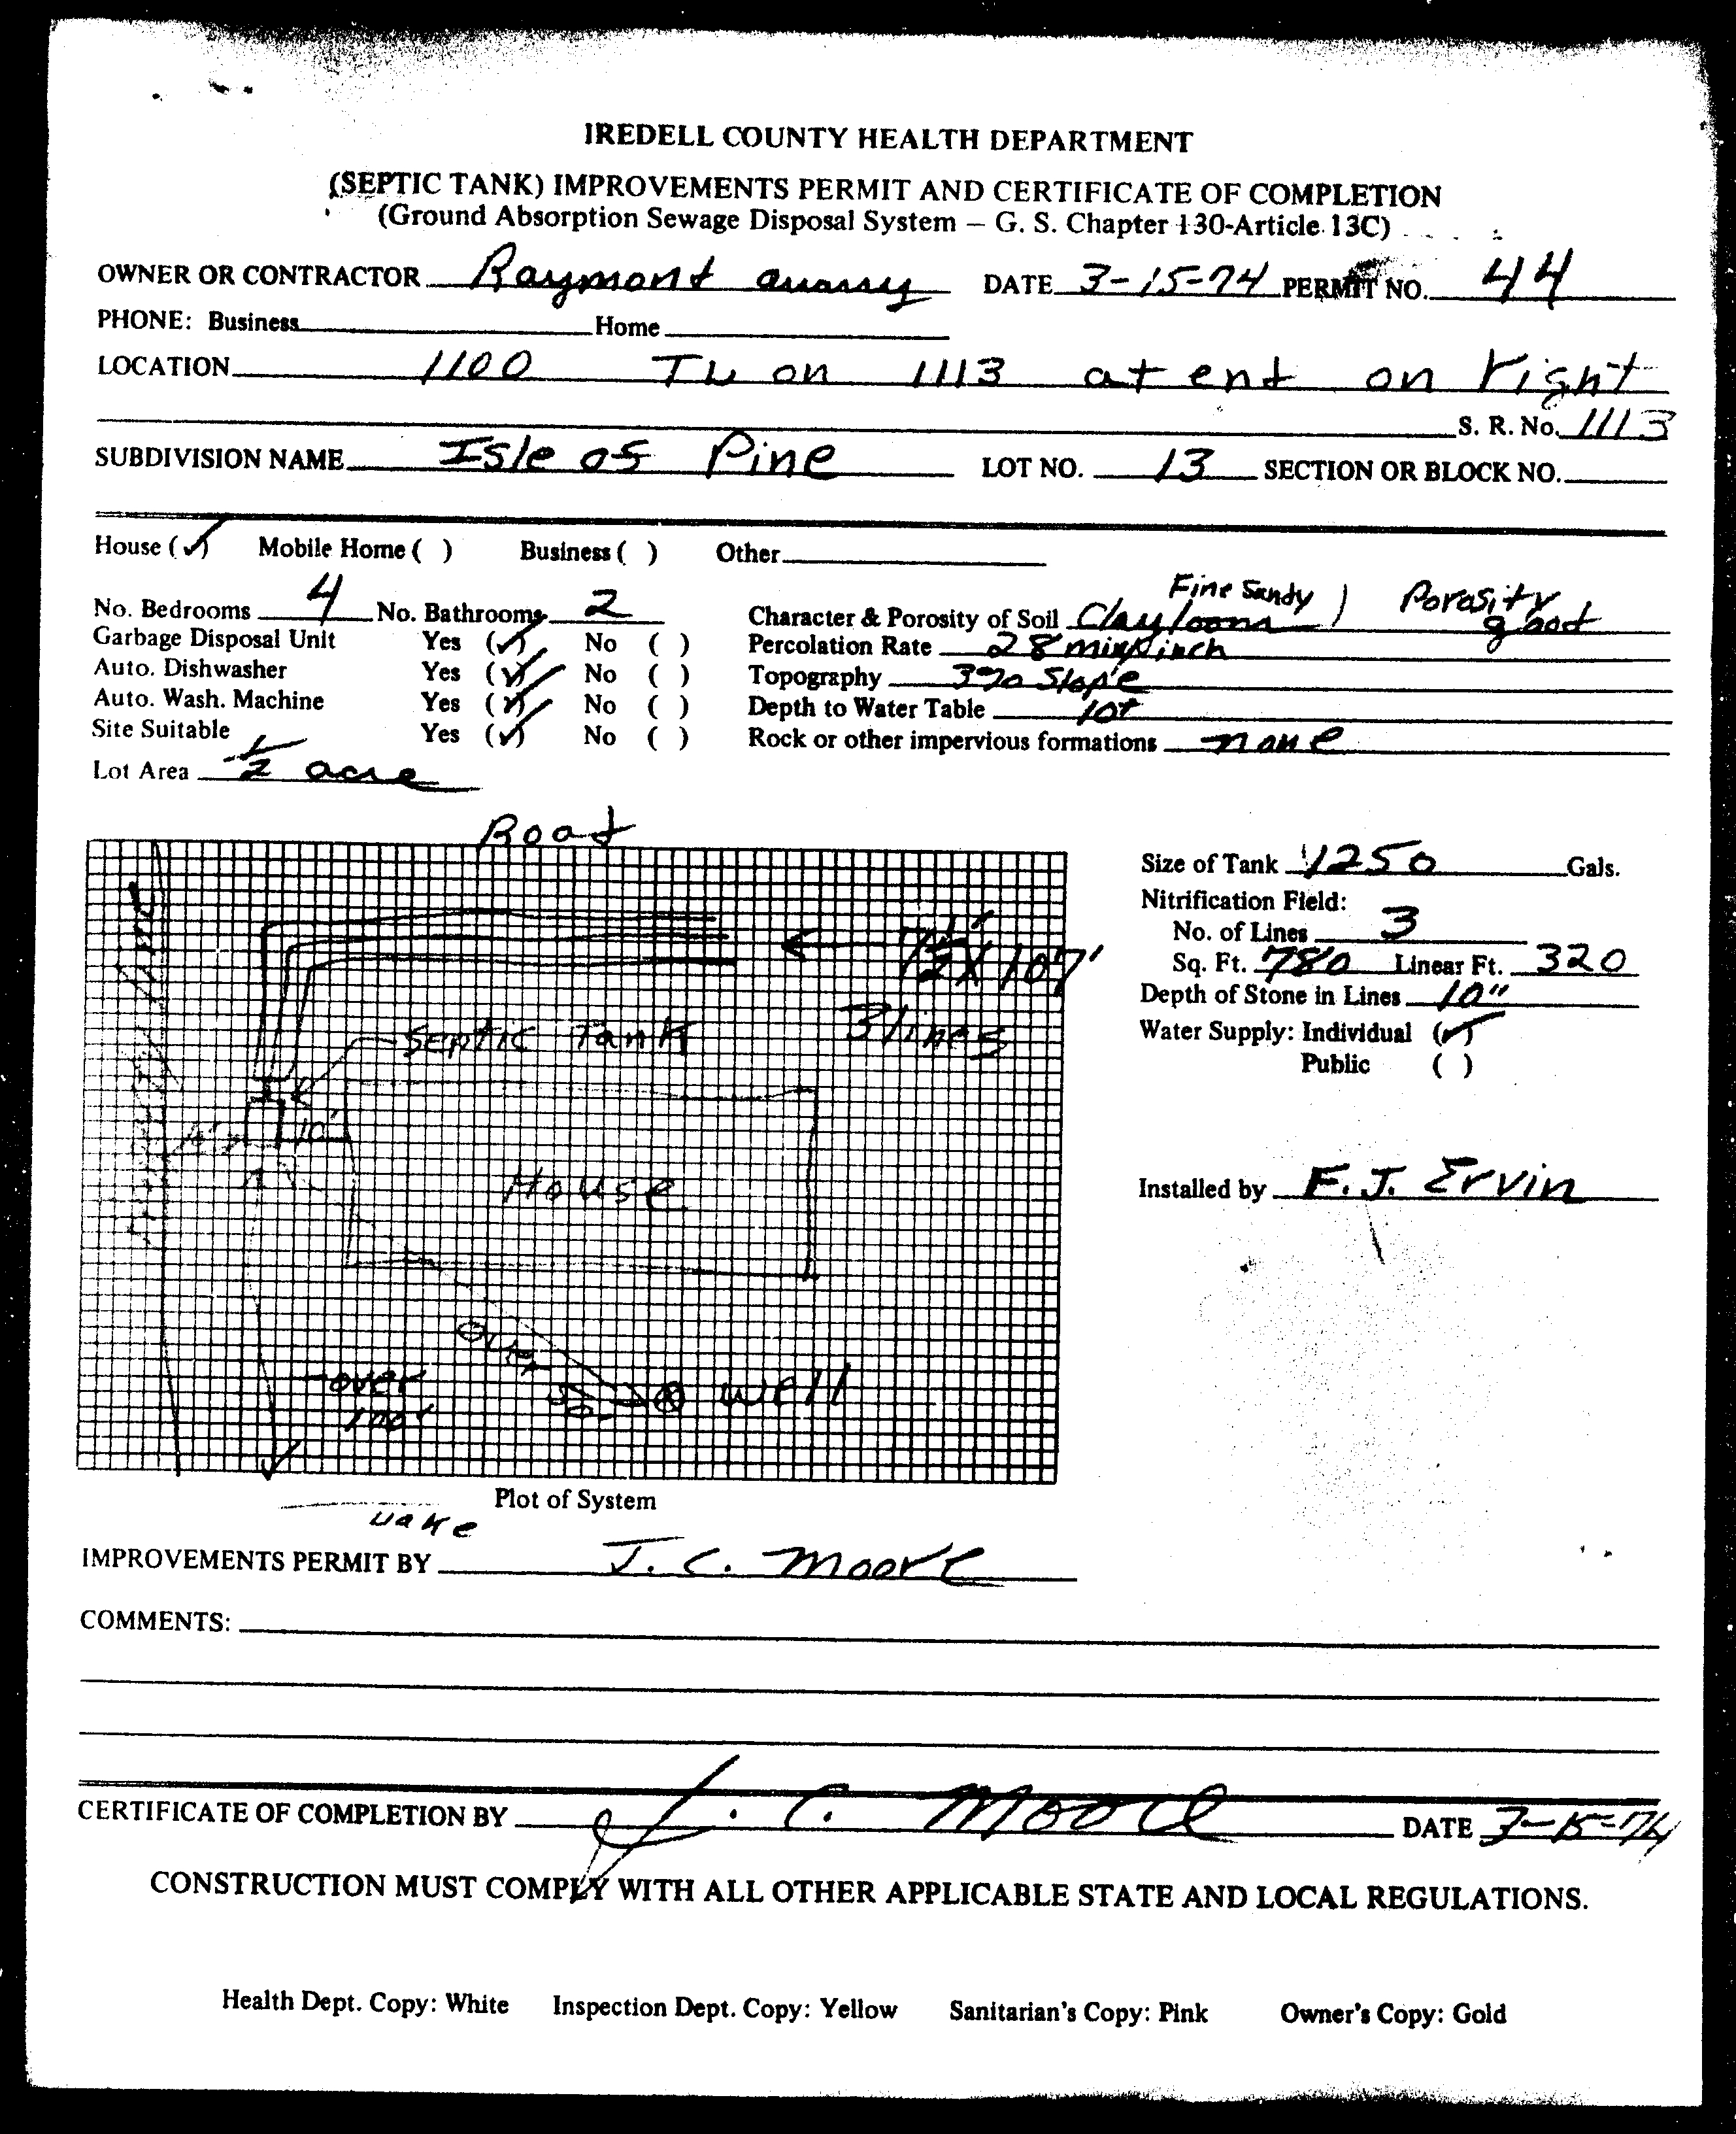 IREDELL COUNTY HEALTH DEPARTMENT
(SEPTIC TANK) IMPROVEMENTS PERMIT AND CERTIFICATE OF COMPLETION
(Ground Absorption Sewage Disposal System – G. S. Chapter 130-Article 13C)
OWNER OR CONTRACTOR Raymond DATE 3-15-74 PERMIT NO. 44
PHONE: Business Home
LOCATION 1100 TL on 1113 at end on right
S. R. No. 1113
SUBDIVISION NAME Isle of Pine LOT NO. 13 SECTION OR BLOCK NO.
House (✓) Mobile Home ( ) Business ( ) Other
No. Bedrooms 4 No. Bathrooms 2
Garbage Disposal Unit Yes (✓) No ( )
Auto. Dishwasher Yes (✓) No ( )
Auto. Wash. Machine Yes (✓) No ( )
Site Suitable Yes (✓) No ( )
Lot Area 1/2 acre
Fine Sandy
Character & Porosity of Soil Clay loam ) Porosity good
Percolation Rate 28 min/inch
Topography 3% Slope
Depth to Water Table 10+
Rock or other impervious formations none
Road
7½' X 107'
3 lines
Septic Tank
10'
House
over 50'
Well
over 100'
Lake
Plot of System
Size of Tank 1250 Gals.
Nitrification Field:
No. of Lines 3
Sq. Ft. 780 Linear Ft. 320
Depth of Stone in Lines 10"
Water Supply: Individual (✓)
Public ( )
Installed by F. J. Ervin
IMPROVEMENTS PERMIT BY J. C. Moore
COMMENTS:
CERTIFICATE OF COMPLETION BY J. C. Moore DATE 3-15-74
CONSTRUCTION MUST COMPLY WITH ALL OTHER APPLICABLE STATE AND LOCAL REGULATIONS.
Health Dept. Copy: White Inspection Dept. Copy: Yellow Sanitarian's Copy: Pink Owner's Copy: Gold